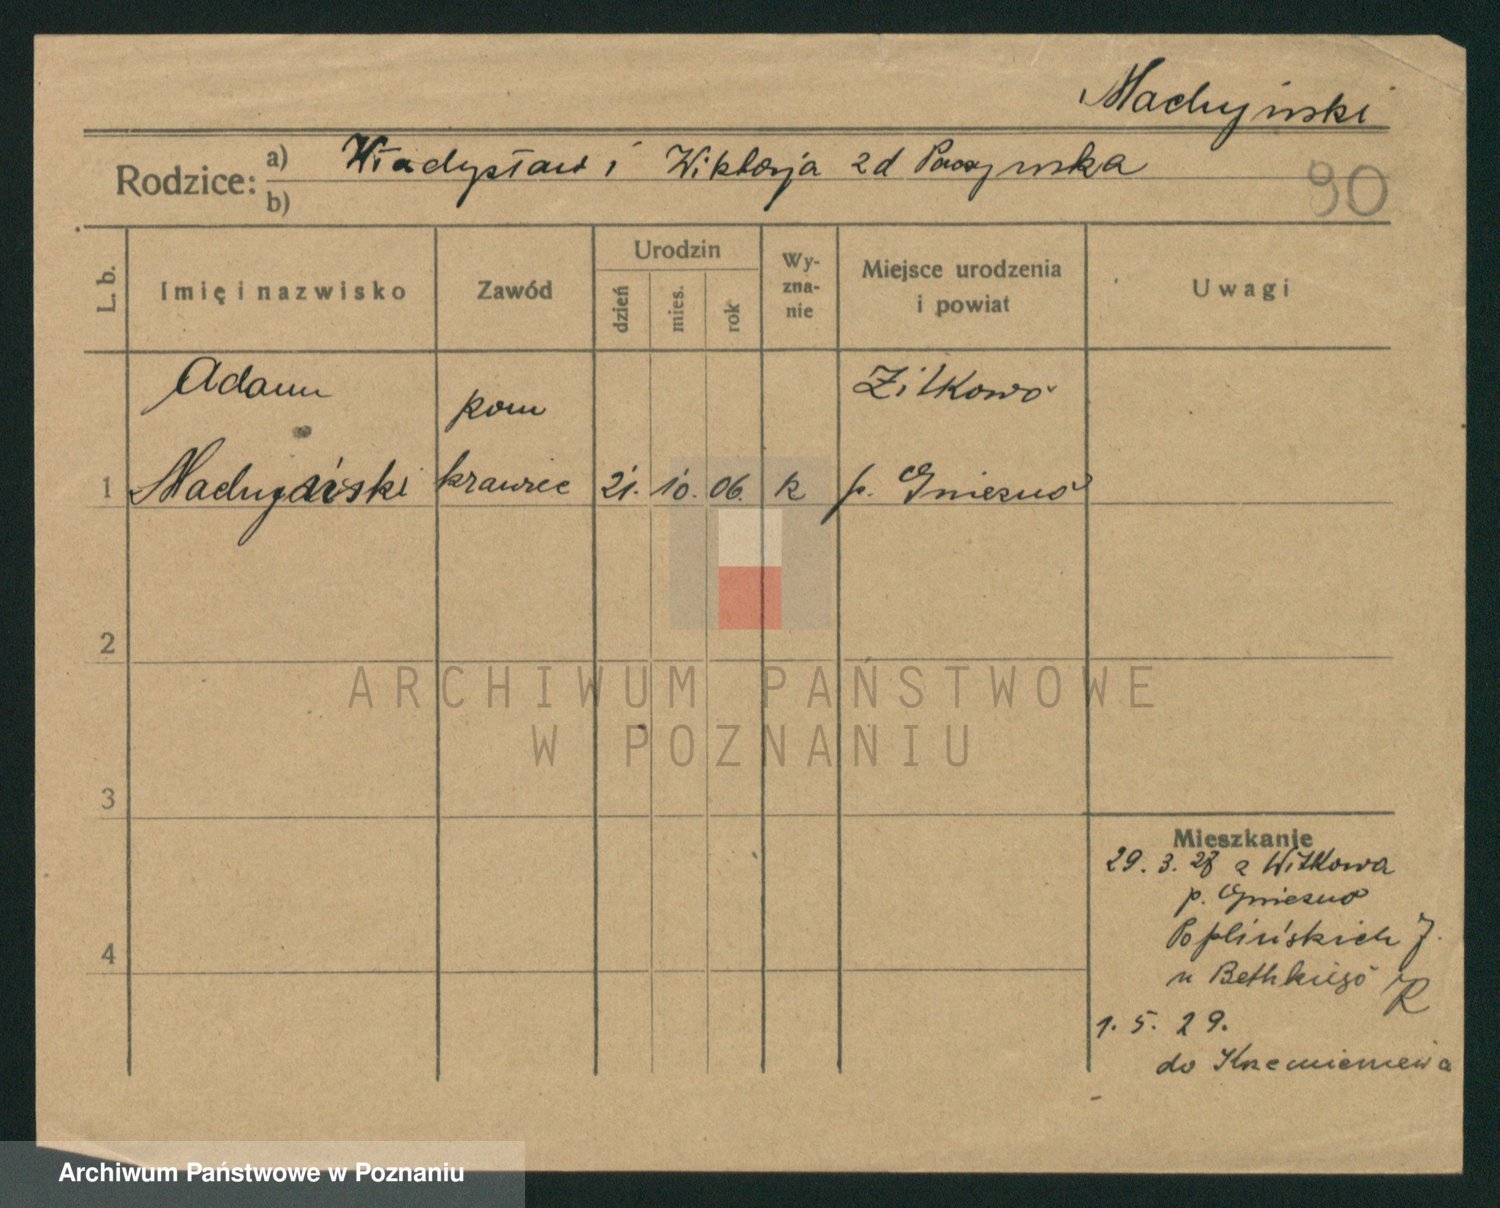 Machyński
Rodzice: a) Władysław i Wiktorja zd
b)
90
L. b. Imię i nazwisko Zawód Urodzin dzień mies. rok Wy-zna-nie Miejsce urodzenia i powiat Uwagi
Adam pom Żitkowo
1 krawiec 21. 10. 06. k p. Gniezno
2
3
4
Mieszkanie
29. 3. 28 z Witkowa
p. Gniezno
Poplińskich 7.
u Bethkiego
R
1. 5. 29.
do Krzemieniewa
ARCHIWUM PAŃSTWOWE
W POZNANIU
Archiwum Państwowe w Poznaniu